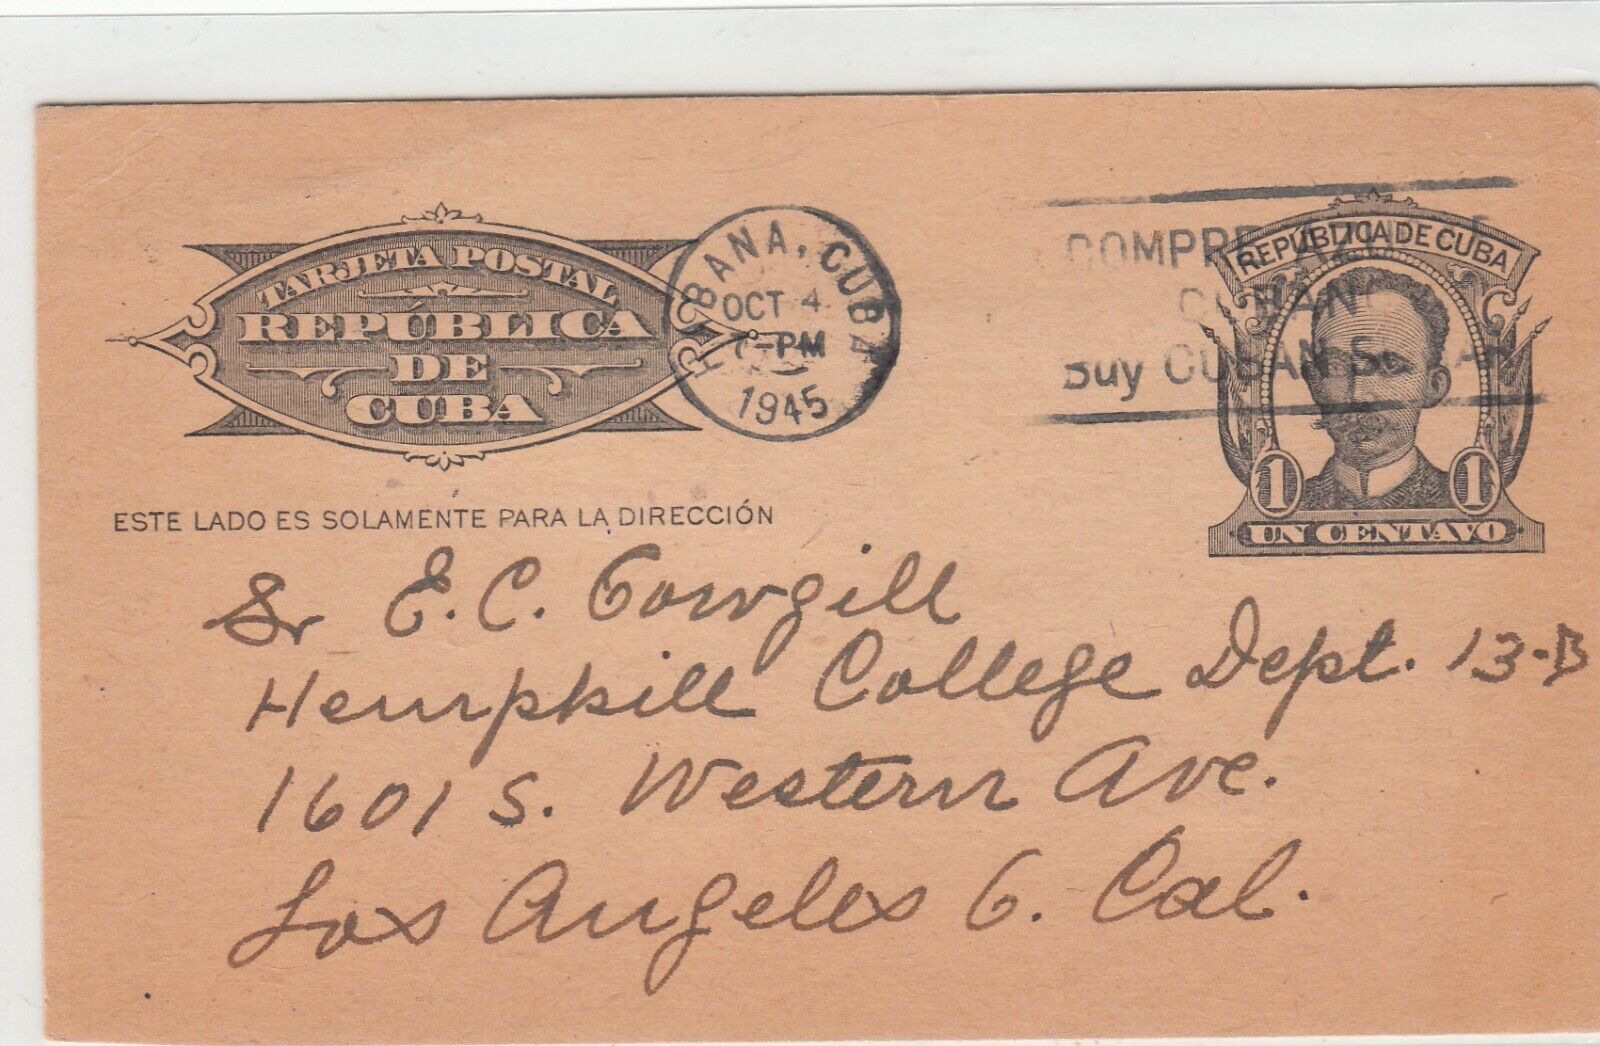 TARJETA POSTAL
REPÚBLICA
DE
CUBA
HABANA, CUBA
OCT 4
7-PM
1945
COMPRE
Buy CUBAN
REPÚBLICA DE CUBA
1 1
UN CENTAVO
ESTE LADO ES SOLAMENTE PARA LA DIRECCIÓN
Sr E. C. Cowgill
Hemphill College Dept. 13-B
1601 S. Western Ave.
Los Angeles 6. Cal.